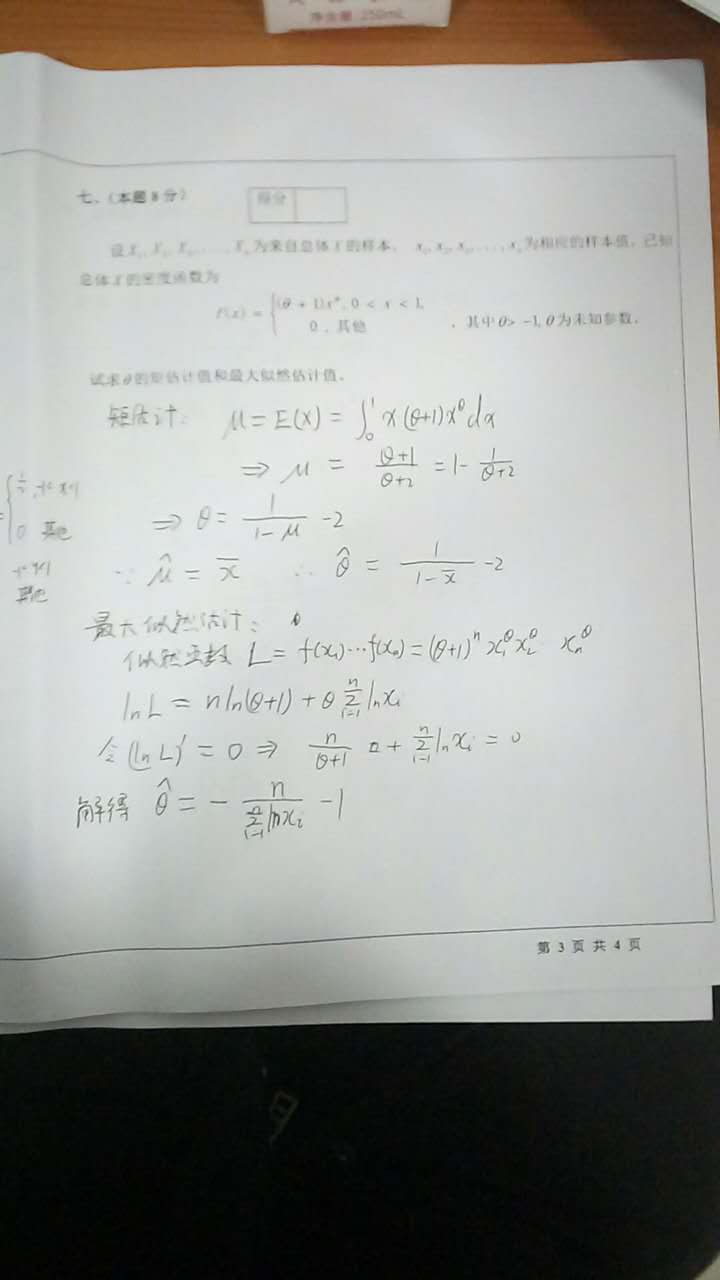 净含量:250mL
七、(本题8分)
得分
设X₁, X₂, X₃, ..., Xₙ为来自总体X的样本, x₁, x₂, x₃, ..., xₙ为相应的样本值, 已知
总体X的密度函数为
f(x) = { (θ + 1)x^θ, 0 < x < 1,
0 , 其他
, 其中θ> -1, θ为未知参数.
试求θ的矩估计值和最大似然估计值.
矩估计: μ = E(X) = ∫₀¹ x(θ+1)x^θ dx
⇒ μ = (θ+1)/(θ+2) = 1 - 1/(θ+2)
⇒ θ = 1/(1-μ) - 2
∵ μ̂ = x̄ ∴ θ̂ = 1/(1-x̄) - 2
最大似然估计:
似然函数 L = f(x₁)⋯f(xₙ) = (θ+1)ⁿ x₁^θ x₂^θ xₙ^θ
lnL = n ln(θ+1) + θ Σᵢ₌₁ⁿ ln xᵢ
令(lnL)' = 0 ⇒ n/(θ+1) + Σᵢ₌₁ⁿ ln xᵢ = 0
解得 θ̂ = - n/(Σᵢ₌₁ⁿ ln xᵢ) - 1
0 其他
其他
第 3 页 共 4 页